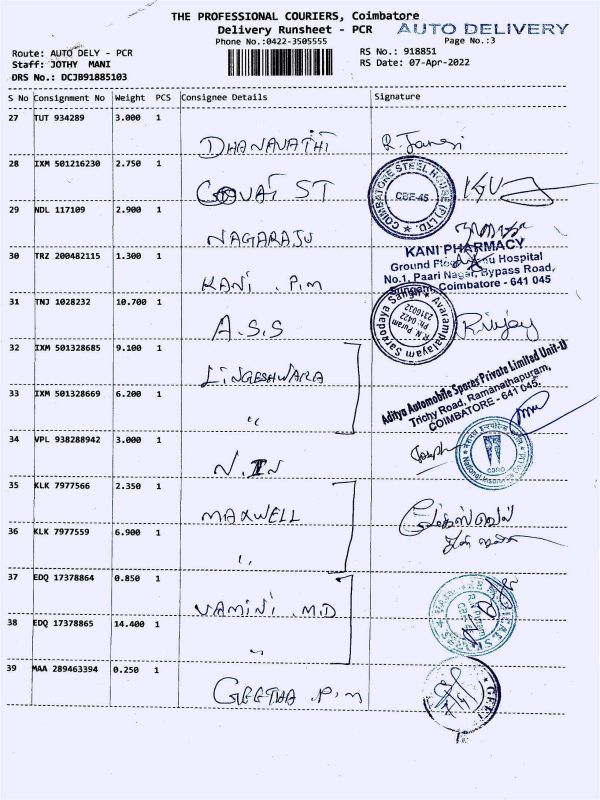 THE PROFESSIONAL COURIERS, Coimbatore
AUTO DELIVERY
Delivery Runsheet - PCR
Phone No.:0422-3505555
Page No.:3
Route: AUTO DELY - PCR
RS No.: 918851
Staff: JOTHY MANI
RS Date: 07-Apr-2022
DRS No.: DCJB91885103
S No Consignment No Weight PCS Consignee Details Signature
27 TUT 934289 3.000 1
DHANAVATHI
28 IXM 501216230 2.750 1
COVAI ST
COIMBATORE STEEL HOUSE (P) LTD.
CBE-45
29 NDL 117109 2.900 1
NAGARAJU
30 TRZ 200482115 1.300 1
KANI . P.M
KANI PHARMACY
Hospital
No.1, Paari Nagar, Bypass Road,
Coimbatore - 641 045
31 TNJ 1028232 10.700 1
A.S.S
Sarvodaya Sangh Avarampalayam
R.N Puram
Ph 0422
2316032
R. Vijay
32 IXM 501328685 9.100 1
LINGESHWARA
33 IXM 501328669 6.200 1
"
Aditya Automobile Spares Private Limited Unit-II
Trichy Road, Ramanathapuram,
COIMBATORE - 641 045.
34 VPL 938288942 3.000 1
N.I.N
Joseph
35 KLK 7977566 2.350 1
MAXWELL
36 KLK 7977559 6.900 1
"
37 EDQ 17378864 0.850 1
VAMINI . M.D
38 EDQ 17378865 14.400 1
"
39 MAA 289463394 0.250 1
GEETHA . P.M